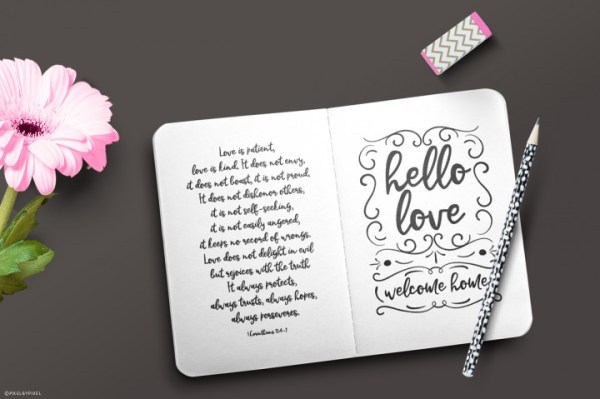 Love is patient,
love is kind. It does not envy,
it does not boast, it is not proud.
It does not dishonor others,
it is not self-seeking,
it is not easily angered,
it keeps no record of wrongs.
Love does not delight in evil
but rejoices with the truth
It always protects,
always trusts, always hopes,
always perseveres.
hello
love
(welcome home
©PIXELBYPIXEL